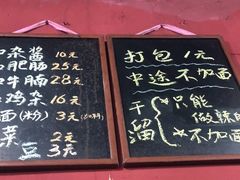 杂酱 10元
肥肠 25元
牛腩 28元
鸡杂 16元
面(粉) 3元
菜 2元
豆 3元
打包1元
中途不加面
干留
只能
做辣的
不加面